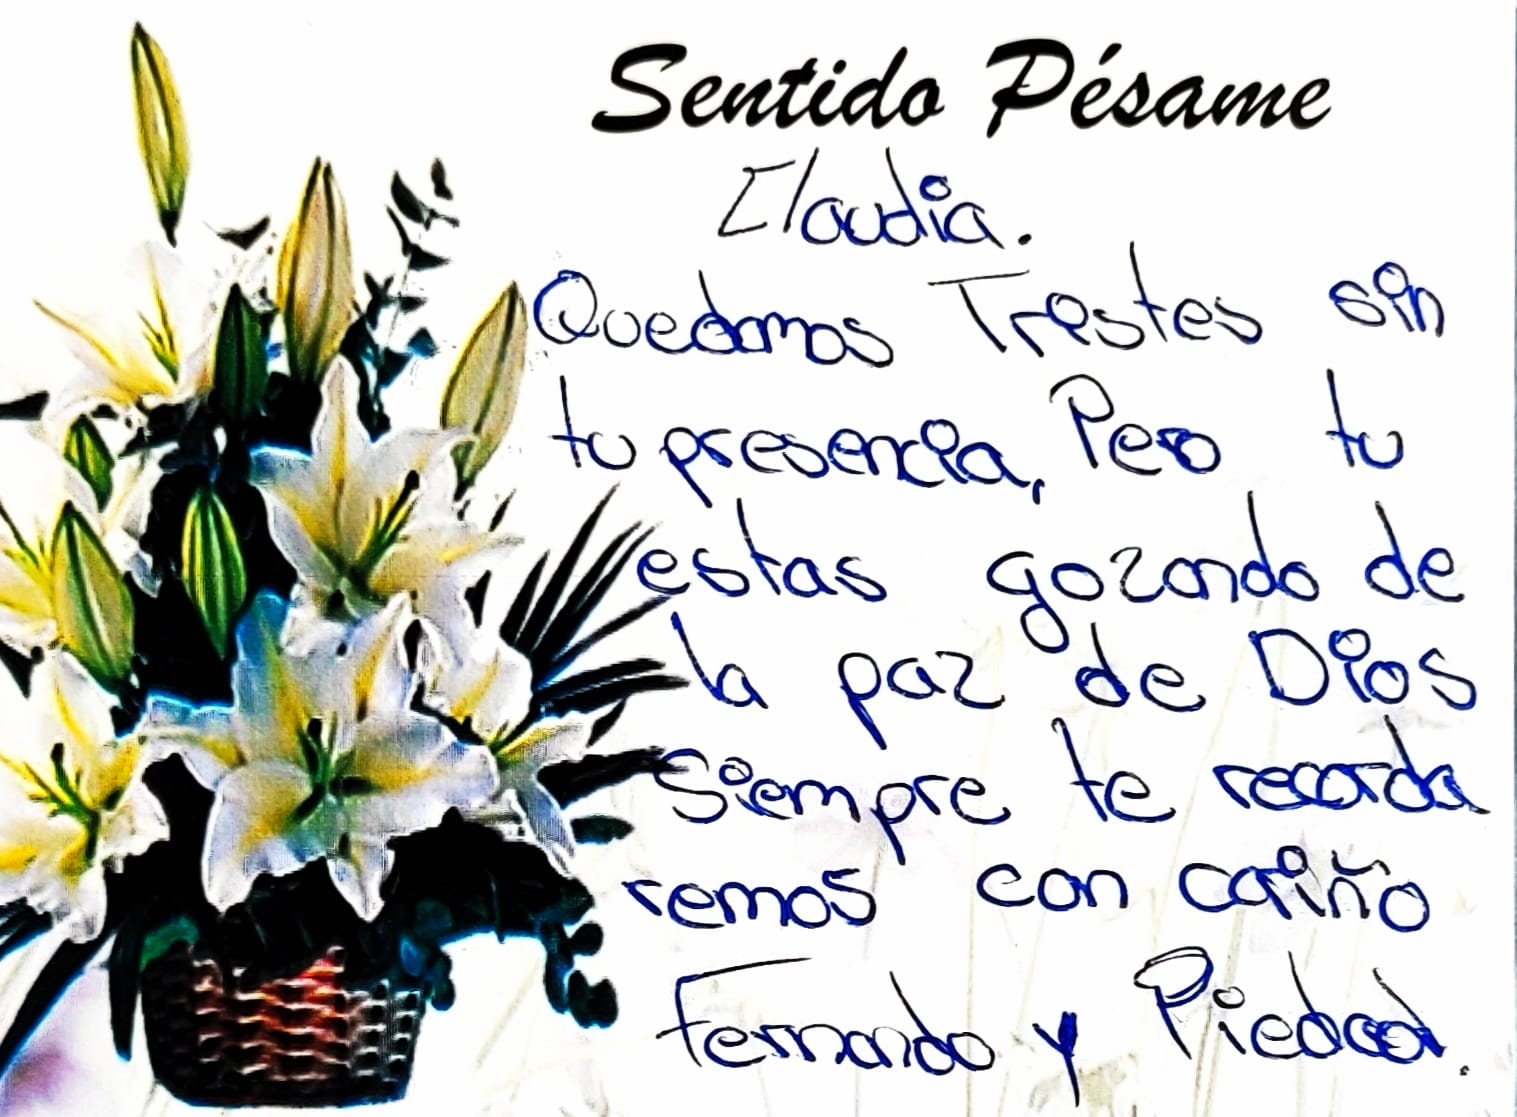 Sentido Pésame
Claudia.
Quedamos Trestes sin
tu presencia, Pero tu
estas gozando de
la paz de Dios
Siempre te recorda
remos con cariño
Fernando y Piedad.